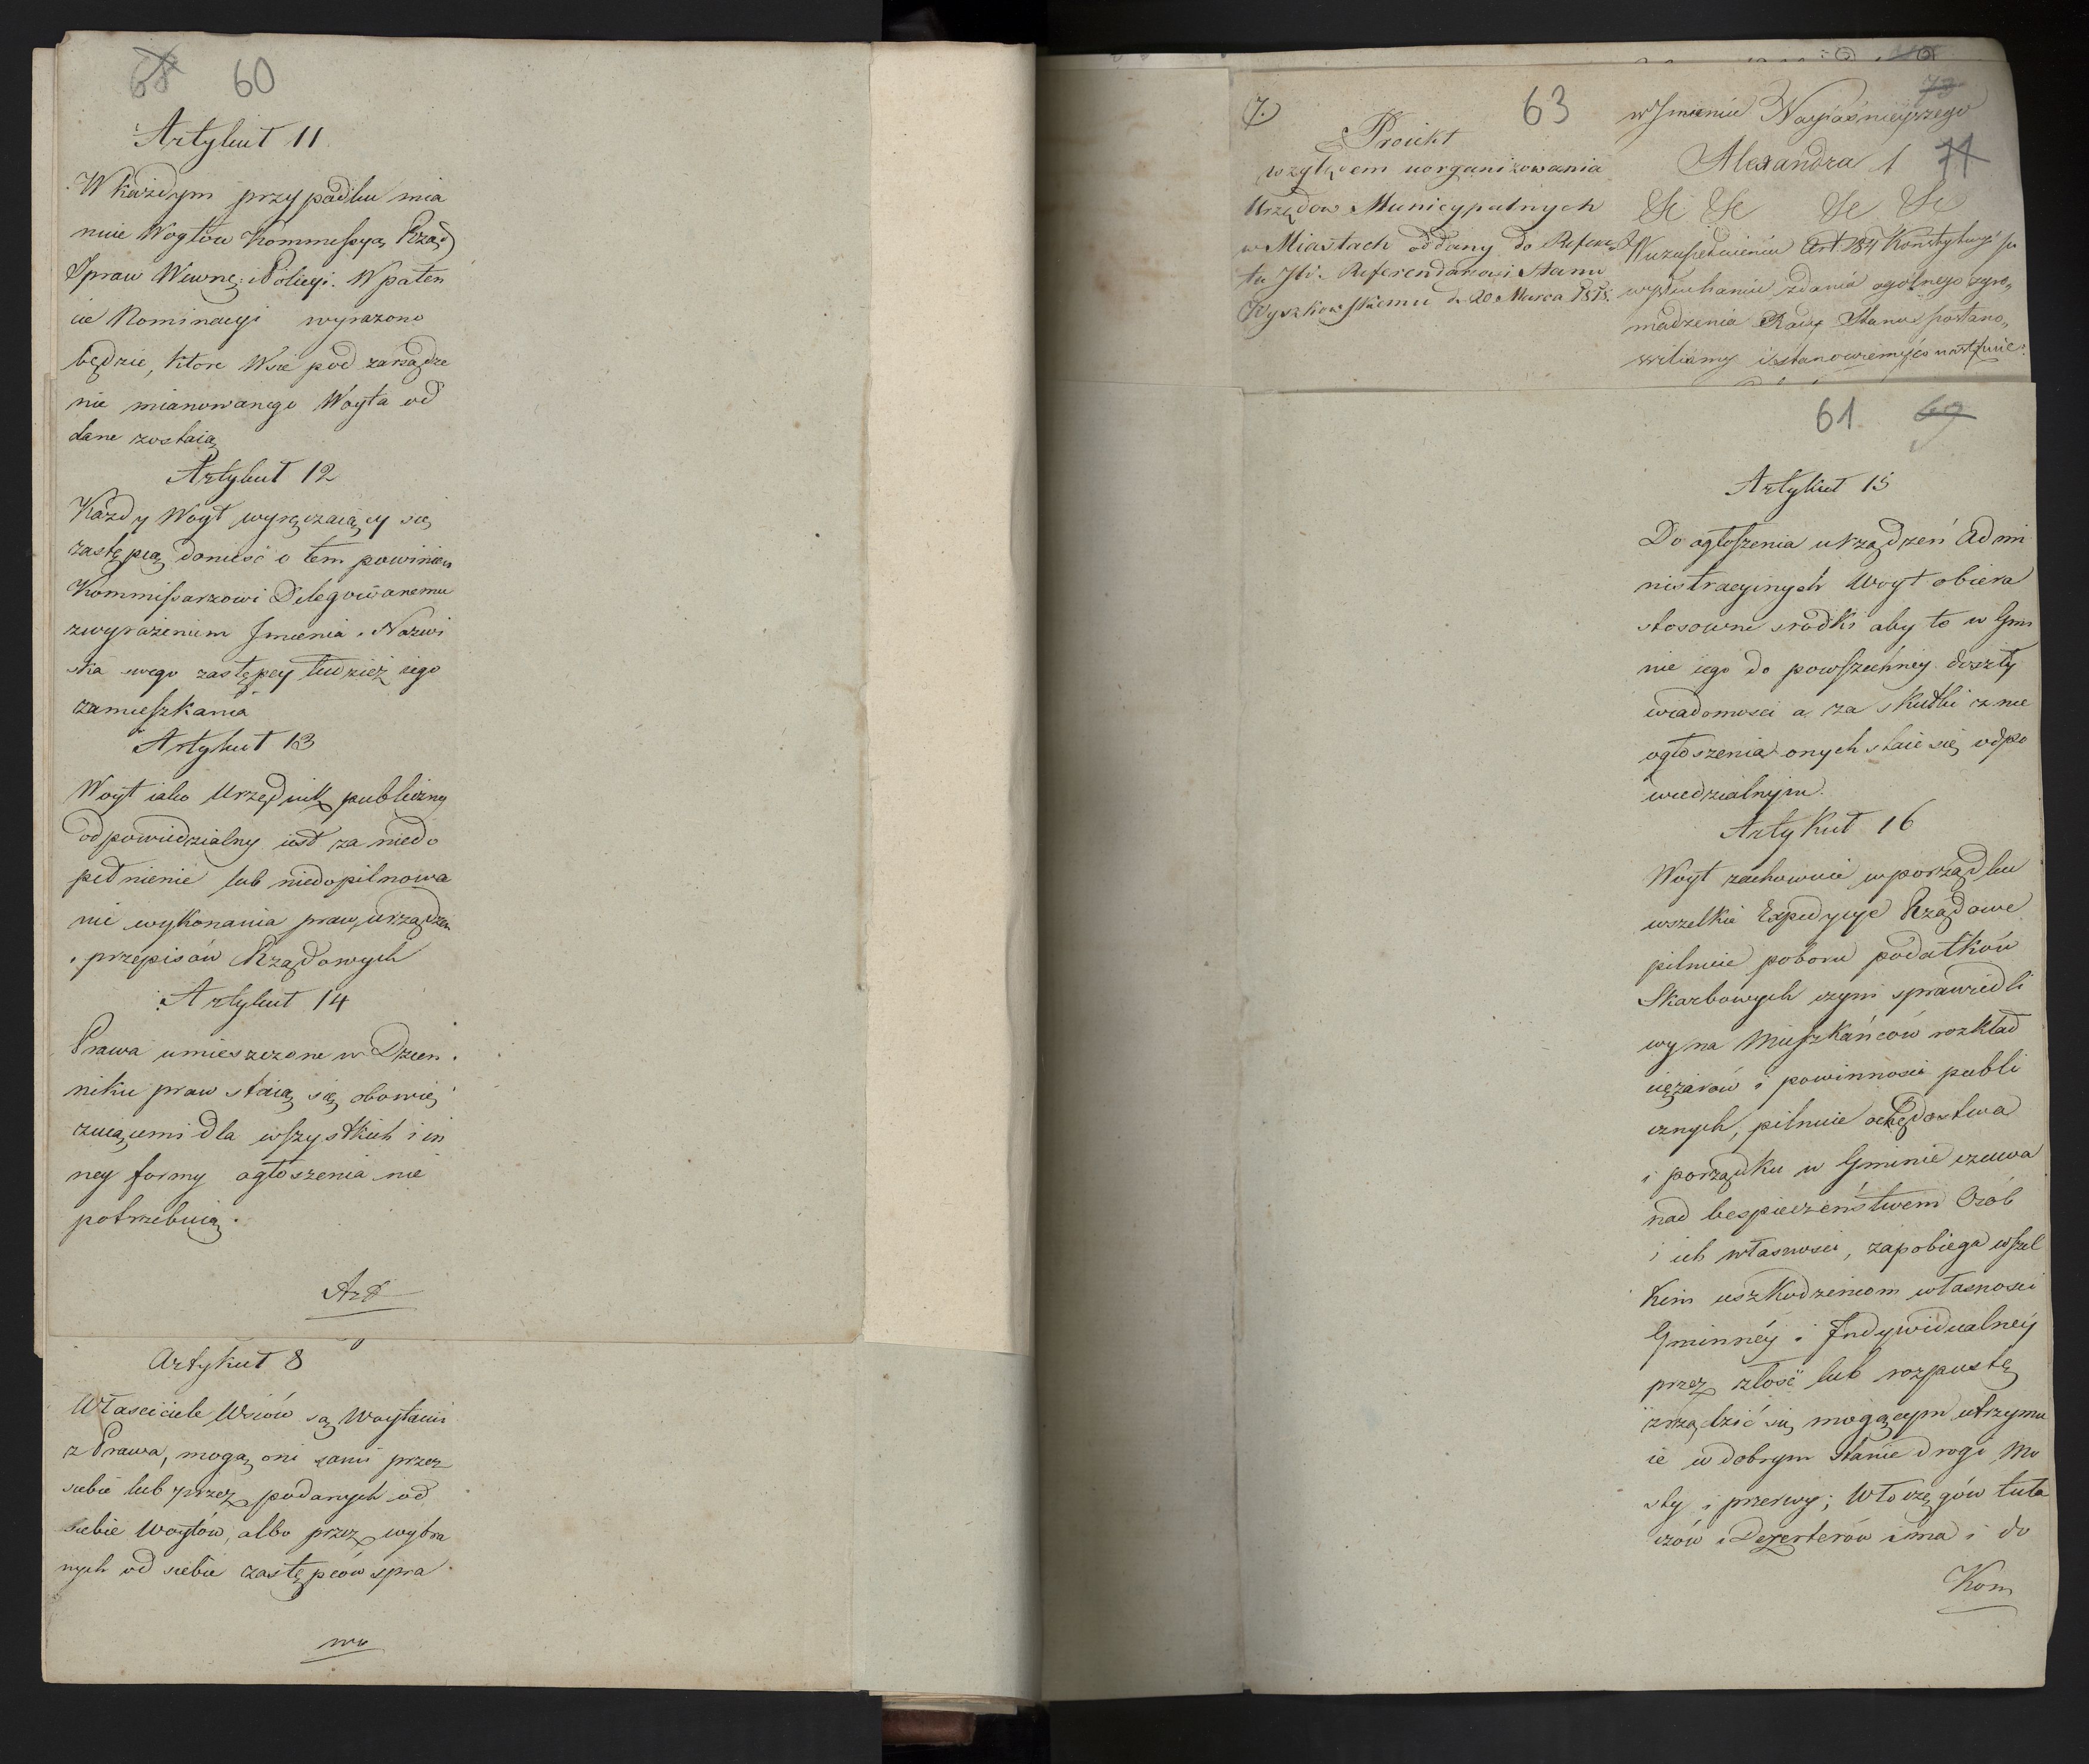 68 60
Artykuł 11.
W każdym przypadku mia
nuie Woytów Kommissya Rząd
Spraw Wewnę: i Policyi. W paten
cie Nominacyi wyrażono
będzie, które Wsie pod zarządze
nie mianowanego Woyta od
dane zostaią
Artykuł 12
Każdy Woyt wyręczaiący się
zastępcą donieść o tem powinien
Kommissarzowi Delegowanemu
z wyrażeniem Imienia i Nazwi
ska swego zastępcy tudzież iego
zamieszkania
Artykuł 13
Woyt iako Urzędnik publiczny
odpowiedzialny iest za niedo
pełnienie lub niedopilnowa
nie wykonania praw, urządzeń
i przepisów Rządowych
Artykuł 14
Prawa umieszczone w Dzien
niku praw staią się obowię
zuiącemi dla wszystkich i in
ney formy ogłoszenia nie
potrzebuią.
Art
Artykuł 8
Właściciele Wsiów są Woytami
z Prawa, mogą oni sami przez
siebie lub przez podanych od
siebie Woytów, albo przez wybra
nych od siebie zastępców spra
wo
7.
63
Proiekt
względem uorganizowania
Urzędów Municypalnych
w Miastach oddany do Refera
tu JW. Referendarzowi Stanu
Wyszkowskiemu d. 20 Marca 1818.
73
w Imieniu Nayiaśnieyszego
Alexandra 1 74
&c &c &c &c
W uzupełnieniu Art. 184 Konstytucyi po
wysłuchaniu zdania ogólnego zgro,
madzenia Rady Stanu postano,
wiliśmy i stanowiemy co następuie:
61 69
Artykuł 15
Do ogłoszenia urządzeń Admi
nistracyinych Woyt obiera
stosowne srodki aby to w Gmi
nie iego do powszechney doszły
wiadomosci a za skutki z nie
ogłoszenia onych staie się odpo
wiedzialnym.
Artykuł 16
Woyt zachowuie w porządku
wszelkie Expedycye Rządowe
pilnuie poboru podatków
Skarbowych czyni sprawiedli
wy na Mieszkańców rozkład
ciężarów i powinnosci publi
cznych, pilnuie ochędostwa
i porządku w Gminie czuwa
nad bespieczeństwem Osób
i ich własnosci, zapobiega wszel
kim uszkodzeniom własnosci
Gminnéy i Indywidualnéy
przez złość lub rozpustę
zrządzić się mogącym utrzymu
ie w dobrym stanie drogi Mo
sty i przerwy; Włóczęgów tuła
czów i Dezerterów ima i do
Kom